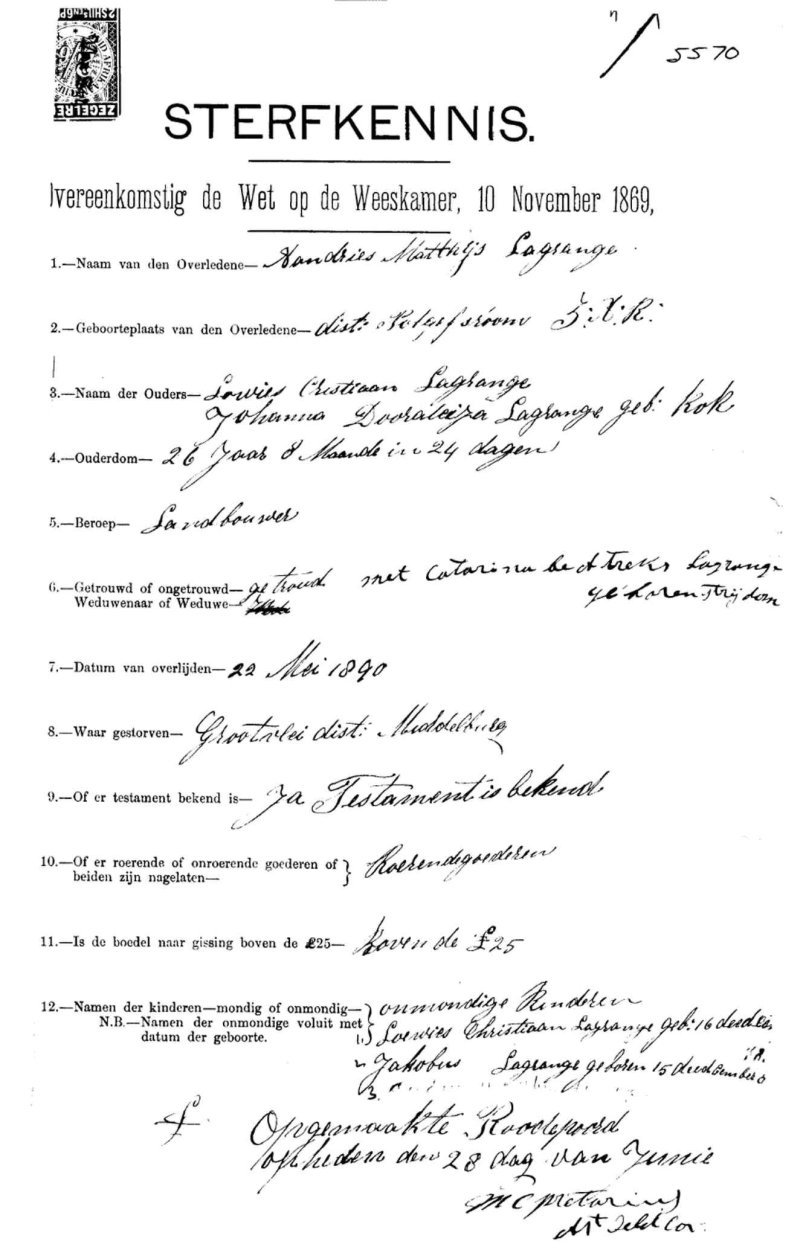 ZEGELRE
5570
STERFKENNIS.
vereenkomstig de Wet op de Weeskamer, 10 November 1869,
1.—Naam van den Overledene— Andries Matthijs Lagrange
2.—Geboorteplaats van den Overledene— dist: Z:A:R:
3.—Naam der Ouders— Lowies Cristiaan Lagrange
Johanna Lagrange geb: Kok
4.—Ouderdom— 26 Jaar 8 Maande in 24 dagen
5.—Beroep— Landbouwer
6.—Getrouwd of ongetrouwd— getroud met Catarina Lagrange
Weduwenaar of Weduwe— geboren Strijdom
7.—Datum van overlijden— 22 Mei 1890
8.—Waar gestorven— Grootvlei dist: Middelburg
9.—Of er testament bekend is— Ja Testament is bekend
10.—Of er roerende of onroerende goederen of } Roerendegoederen
beiden zijn nagelaten—
11.—Is de boedel naar gissing boven de £25— Boven de £25
12.—Namen der kinderen—mondig of onmondig— onmondige Kinderen
N.B.—Namen der onmondige voluit met
datum der geboorte. Loewies Christiaan Lagrange geb: 16
Jakobus Lagrange geboren 15
3.
Opgemaakte Roodepoord
opheden den 28 dag van Junie
M C Pretorius
At Feld Cor.